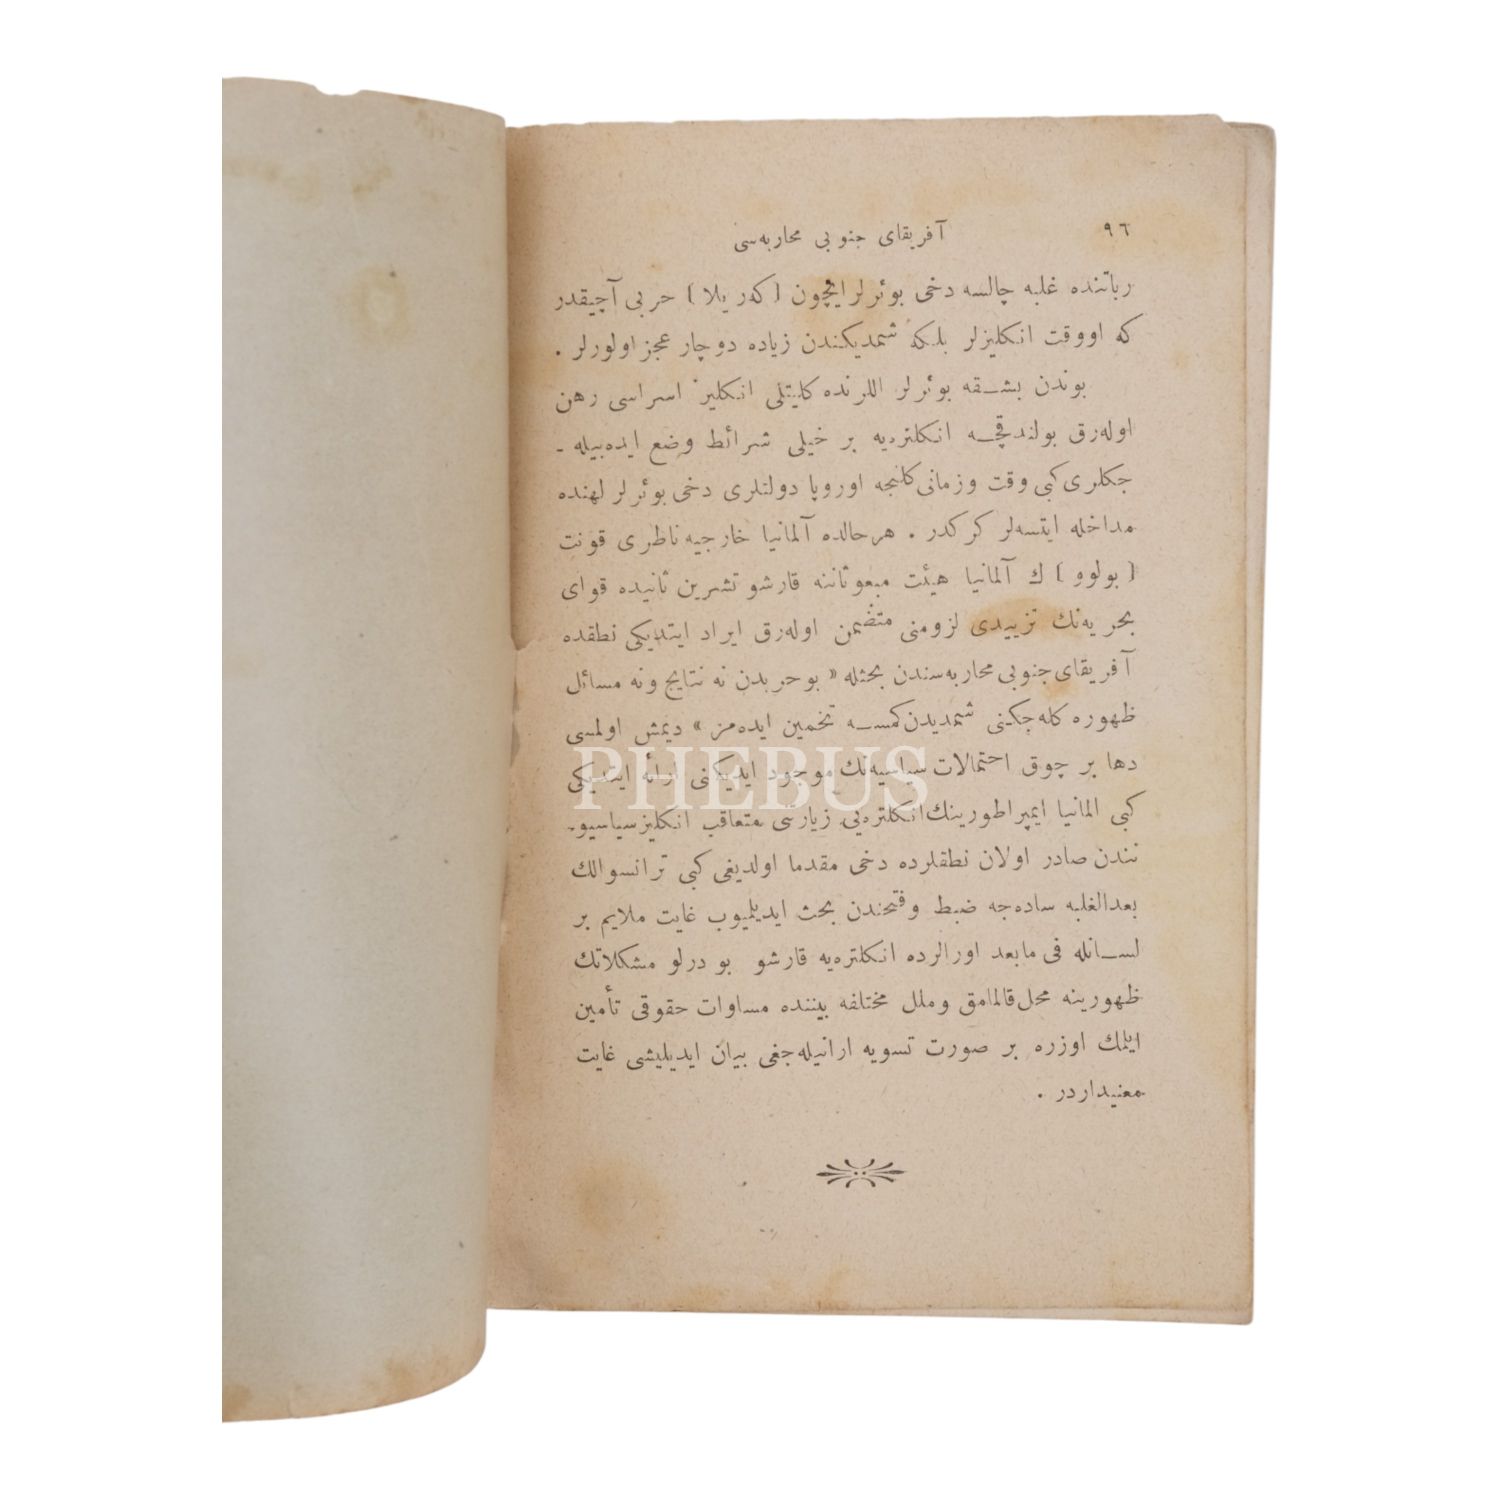 ٩٦
آفریقای جنوبی محاربه‌سی
رباتنده غلبه چالسه دخی بوئرلر ایچون [ که‌ریلا ] حربی آچیقدر
که اووقت انکلیزلر بلکه شمدیکندن زیاده دوچار عجز اولورلر .
بوندن بشـقه بوئرلر اللرنده کلیتلی انکلیز اسراسی رهن
اوله‌رق بولندقچـه انکلتره‌یه بر خیلی شرائط وضع ایده‌بیله -
جکلری کبی وقت وزمانی کلنجه اوروپا دولتلری دخی بوئرلر لهنده
مداخله ایتسه‌لر کرکدر . هرحالده آلمانیا خارجیه ناظری قونت
[ بولوو ] ك آلمانیا هیئت مبعوثاننه قارشو تشرین ثانیده قوای
بحریه‌نك تزییدی لزومنی متضمن اوله‌رق ایراد ایتدیکی نطقده
آفریقای جنوبی محاربه‌سندن بحثله « بوحربدن نه نتایج ونه مسائل
ظهوره کله‌جکنی شمدیدن کمسـه تخمین ایده‌مز » دیمش اولمسی
دها بر چوق احتمالات سیاسیه‌نك موجود ایدیکنی ارائه ایتدیکی
PHEBUS
کبی المانیا ایمپراطورینك انکلتره‌یی زیارتنی متعاقب انکلیز سیاسیو-
نندن صادر اولان نطقلرده دخی مقدما اولدیغی کبی ترانسوالك
بعدالغلبه ساده‌جه ضبط وفتحندن بحث ایدیلمیوب غایت ملایم بر
لسـانله فی مابعد اورالرده انکلتره‌یه قارشو بو درلو مشکلاتك
ظهورینه محل قالمامق وملل مختلفه بیننده مساوات حقوقی تأمین
ایلمك اوزره بر صورت تسویه ارانیله‌جغی بیان ایدیلیشی غایت
معنیداردر .